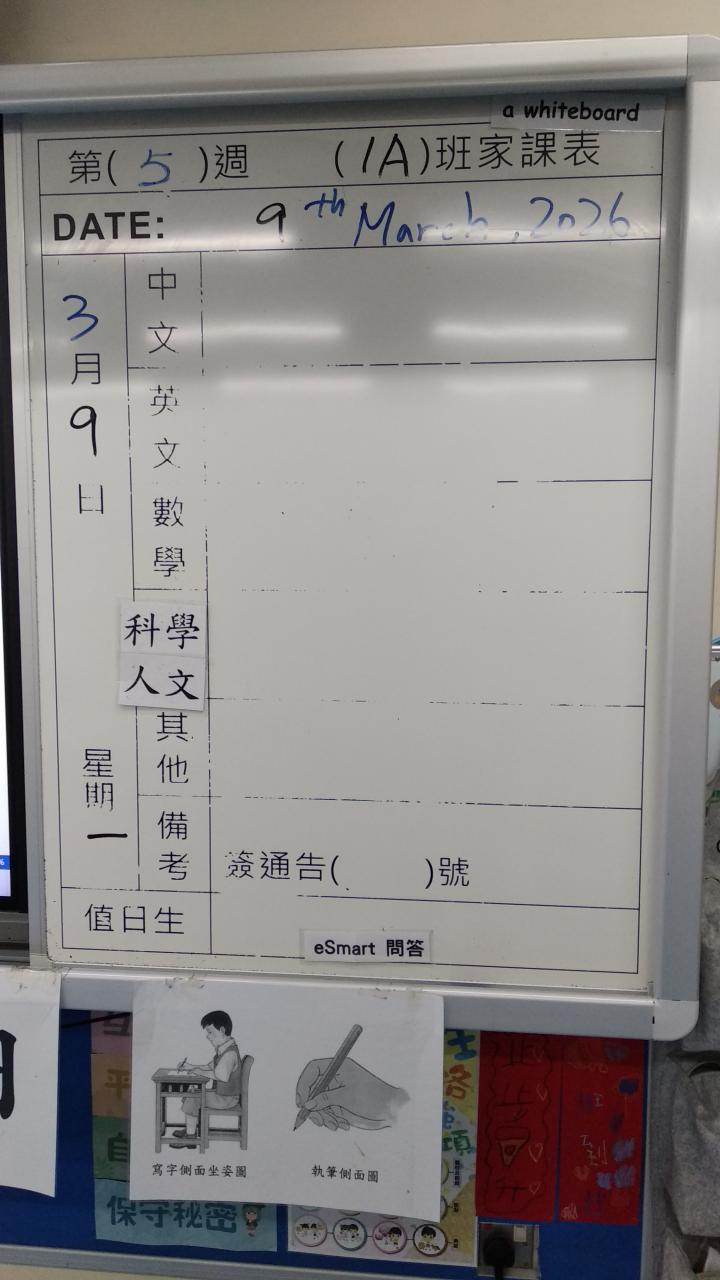 a whiteboard
第( 5 )週 (1A)班家課表
DATE: 9th March, 2026
3月9日
星期一
中文
英文
數學
科學
人文
其他
備考
簽通告( )號
值日生
eSmart 問答
寫字側面坐姿圖
執筆側面圖
平
自
保守秘密